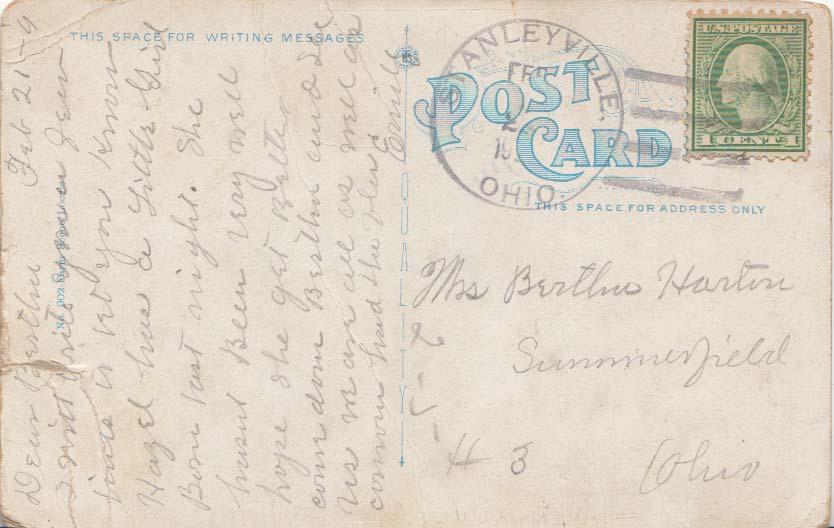 THIS SPACE FOR WRITING MESSAGES
Dear Bertha Feb 21-19
I will write you a few
lines to let you know
Hazel has a Little Girl
Born last night. She
hasnt Been very well
hope she get Better
come down Bertha and see
us we are all as well as
common had the
Emill
QUALITY
POST
CARD
STANLEYVILLE,
FEB
2
19
OHIO.
U.S. POSTAGE
1 CENT 1
THIS SPACE FOR ADDRESS ONLY
Mrs Bertha Harton
Summerfield
# 3
Ohio